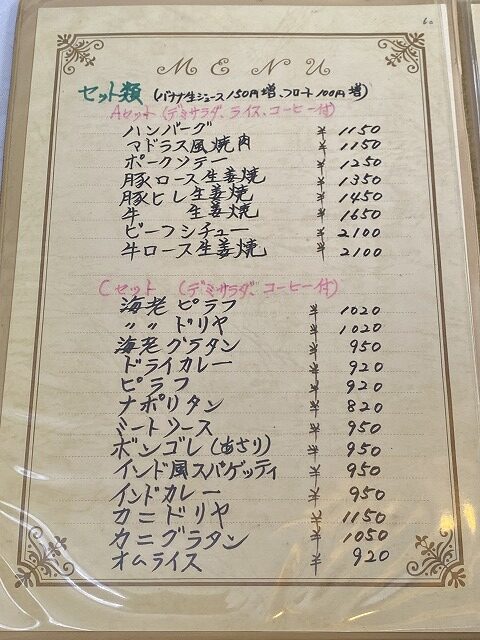 60
MENU
セット類 (バナナ生ジュース150円増、フロート100円増)
Aセット (デミサラダ、ライス、コーヒー付)
ハンバーグ ¥1150
マドラス風焼肉 ¥1150
ポークソテー ¥1250
豚ロース生姜焼 ¥1350
豚ヒレ生姜焼 ¥1450
牛 生姜焼 ¥1650
ビーフシチュー ¥2100
牛ロース生姜焼 ¥2100
Cセット (デミサラダ、コーヒー付)
海老ピラフ ¥1020
〃〃ドリヤ ¥1020
海老グラタン ¥950
ドライカレー ¥920
ピラフ ¥920
ナポリタン ¥820
ミートソース ¥950
ボンゴレ(あさり) ¥950
インド風スパゲッティ ¥950
インドカレー ¥950
カニドリヤ ¥1150
カニグラタン ¥1050
オムライス ¥920